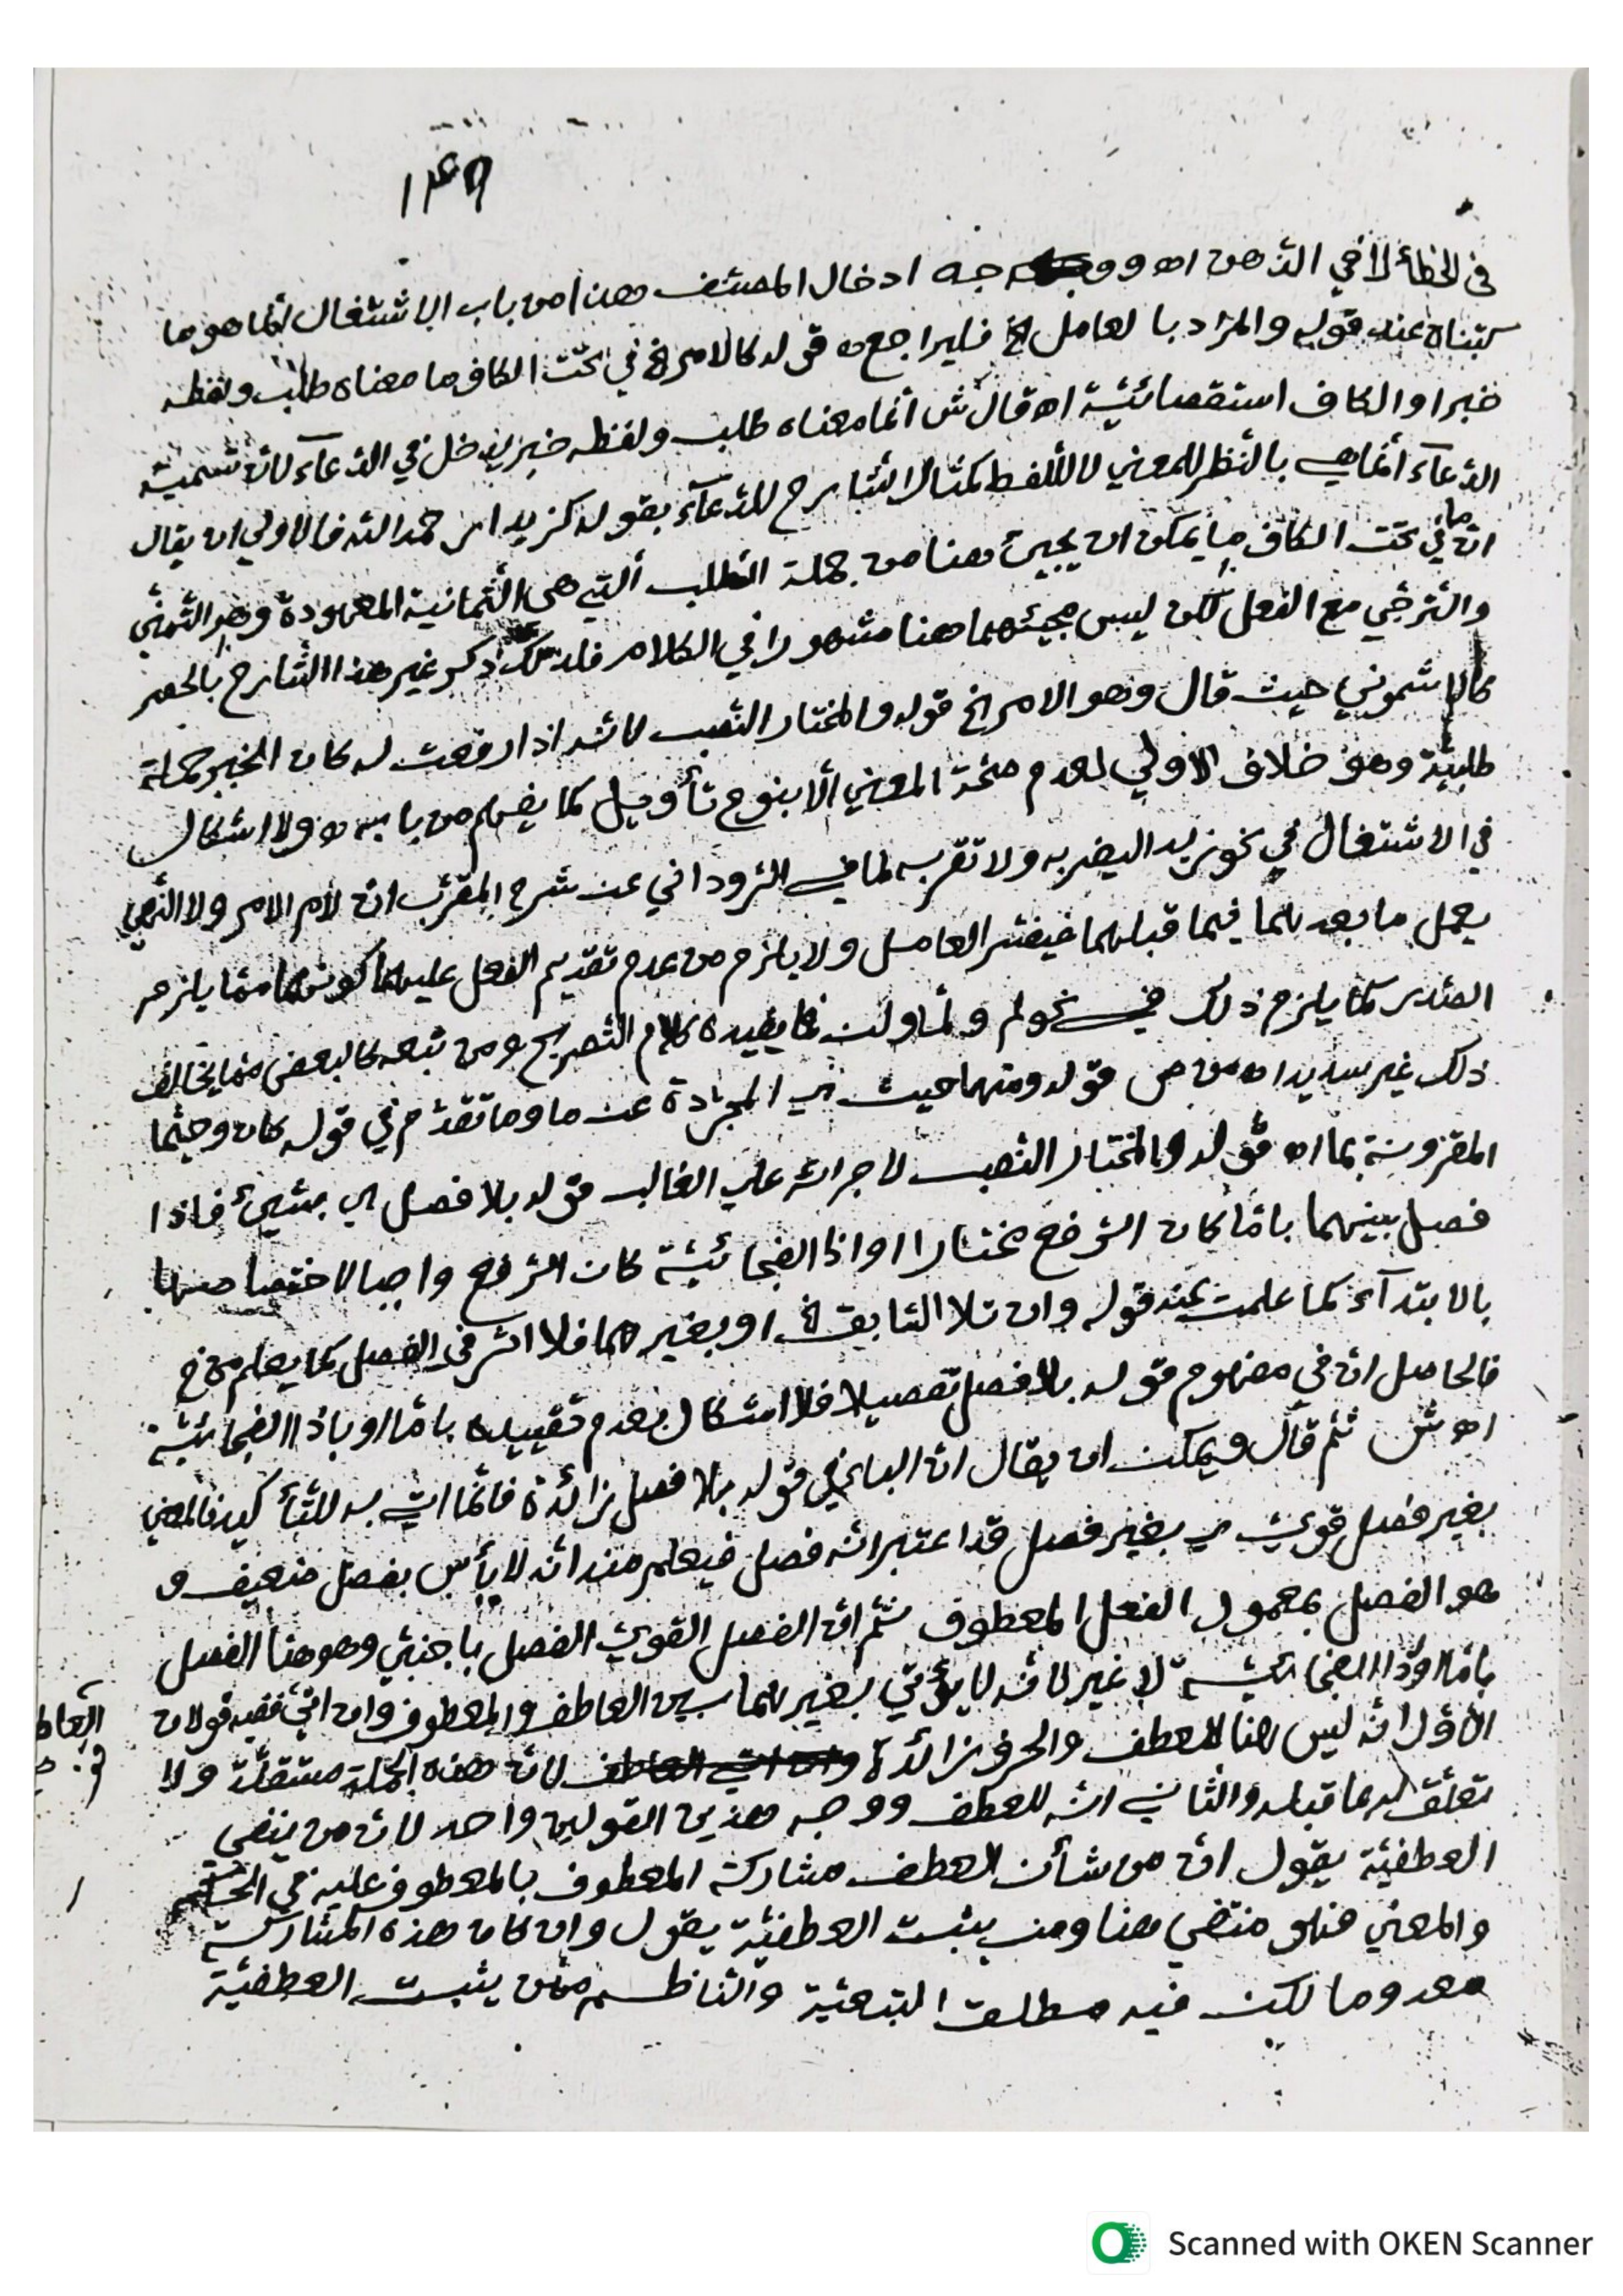 ١٤٩
في الخطأ لا في الذّهن اه ووجه ادخال المصنّف هذا من باب الاشتغال انّما هو ما
كتبناه عند قوله والمراد بالعامل الخ فليراجع ه قوله كالامر الخ في تحت الكاف ما معناه طلب ولفظه
خبرا والكاف استقصائيّة اه قال ش انّما معناه طلب ولفظه خبر يدخل في الدّعاء لانّ تسمية
الدّعآء انّما هي بالنّظر للمعني لا للّفظ كمثال الشّارح للدّعآء بقوله كزيدا رحمه اللّه فالاولي ان يقال
انّ ما في تحت الكاف ما يمكن ان يجيئ هنا من جملة الطّلب الّتي هي الثّمانية المعهودة وهو التّمنّي
والتّرجّي مع الفعل لكن ليس مجيئهما هنا مشهورا في الكلام فلذلك ذكر غير هذا الشّارح بالحصر
كالاشموني حيث قال وهو الامر الخ قوله والمختار النّصب لانّه اذا رفعت له كان الخبر جملة
طلبيّة وهو خلاف الاولي لعدم صحّة المعني الّا بنوع تأويل كما يفهم من بابه ه ولا اشكال
في الاشتغال في نحو زيدا ليضربه ولا تقربه لما في الرّوداني عن شرح المقرّب انّ لام الامر ولا النّهي
يعمل ما بعدهما فيما قبلهما فيفسّر العامل ولا يلزم من عدم تقديم الفعل عليهما كونهما ممّا يلزم
الصّدر كما يلزم ذلك في نحو لم ولمّا ولن فما يفيده كلام التّصريح ومن تبعه كالبعض ممّا يخالف
ذلك غير سديد اه من ص قوله ومنها حيث اي المجرّدة عن ما وما تقدّم في قوله كان وحيثما
المقرونة بما اه قوله والمختار النّصب لاجرائه علي الغالب قوله بلا فصل اي بشيئ فاذا
فصل بينهما بامّا كان الرّفع مختارا او اذا الفجائيّة كان الرّفع واجبا لاختصاصها
بالابتدآء كما علمت عند قوله وان تلا السّابق الخ او بغيرهما فلا اثر في الفصل كما يعلم من خ
فالحاصل انّ في مفهوم قوله بلا فصل تفصيلا فلا اشكال بعدم تقييده بامّا او باذا الفجائيّة
اه ش ثمّ قال ويمكن ان يقال انّ الباء في قوله بلا فصل زائدة فانّما اتي به للتّأكيد فالمعني
بغير فصل قويّ اي بغير فصل قد اعتبر انّه فصل فيعلم منه انّه لا بأس بفصل ضعيف و
هو الفصل بمعمول الفعل المعطوف ثمّ انّ الفصل القويّ الفصل باجنبيّ وهو هنا الفصل
بامّا او اذا الفجائيّة لا غير لانّه لا يؤتي بغيرهما بين العاطف والمعطوف وان اتي ففيه قولان
الاوّل انّه ليس هنا للعطف والحرف زائدة لانّ هذه الجملة مستقلّة ولا
تعلّق له بما قبله والثّاني انّه للعطف ووجه هذين القولين واحد لانّ من ينفي
العطفيّة يقول انّ من شأن العطف مشاركة المعطوف بالمعطوف عليه في الحكم
والمعني فهو منتفي هنا ومن يثبت العطفيّة يقول وان كان هذه المشاركة
معدوما لكن فيه مطلق التّبعيّة والنّاظم ممّن يثبت العطفيّة
Scanned with OKEN Scanner